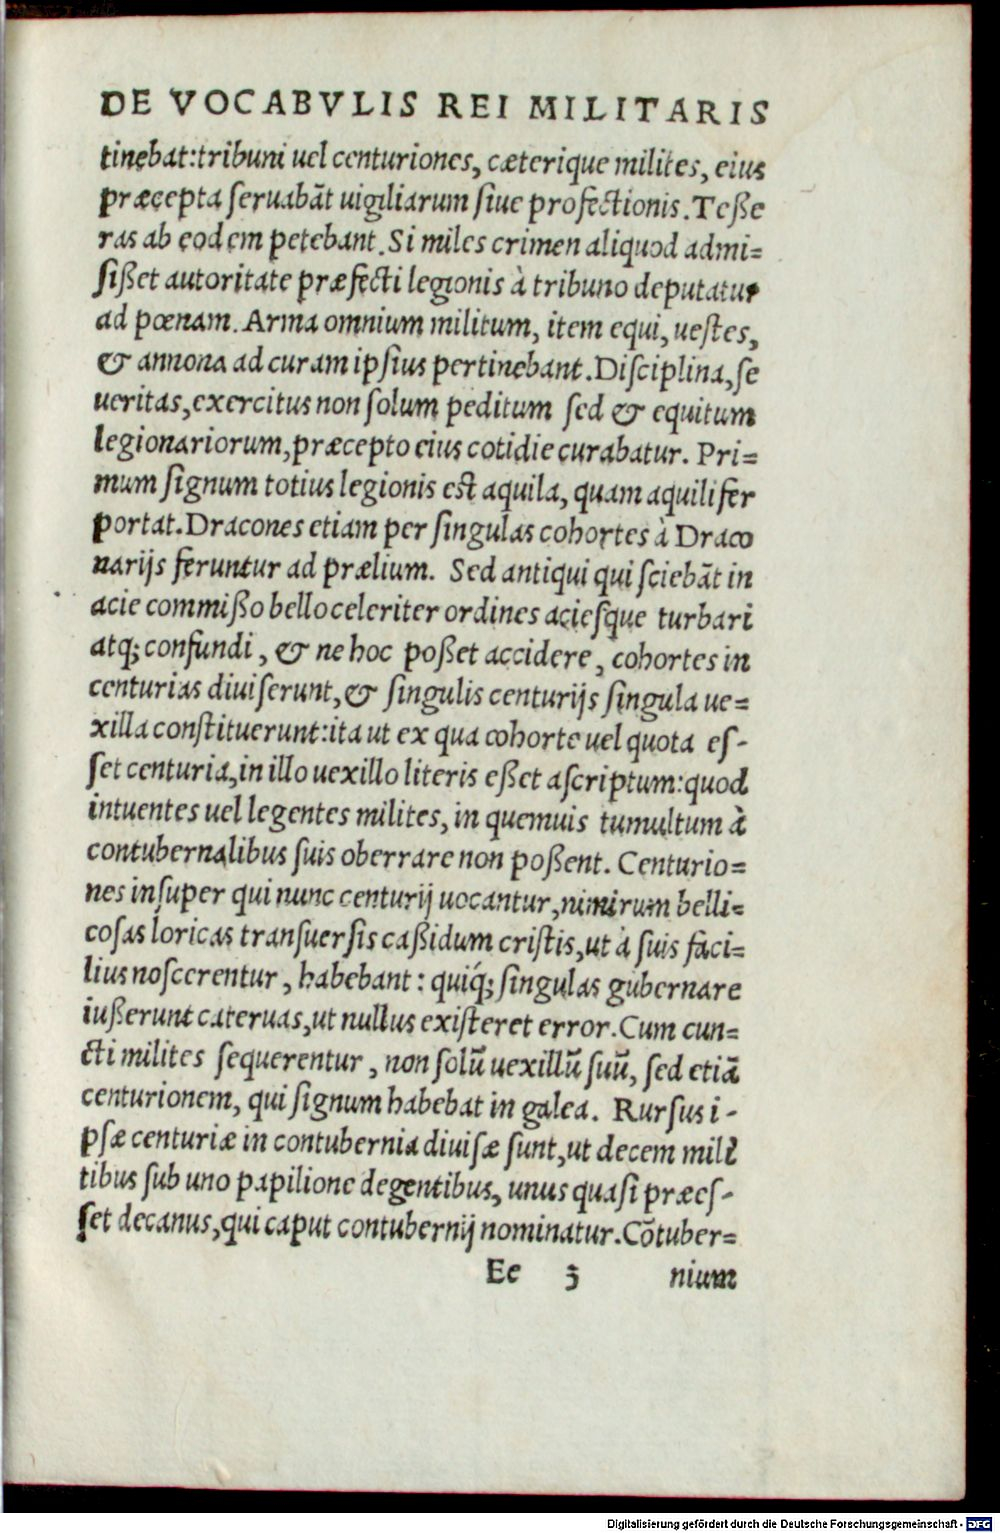 DE VOCABVLIS REI MILITARIS
tinebat:tribuni uel centuriones, cæterique milites, eius
præcepta ſeruabāt uigiliarum ſiue profectionis.Teße
ras ab eodem petebant.Si miles crimen aliquod admi=
ſißet autoritate præfecti legionis à tribuno deputatur
ad pœnam.Arma omnium militum, item equi, ueſtes,
& annona ad curam ipſius pertinebant.Diſciplina,ſe
ueritas,exercitus non ſolum peditum ſed & equitum
legionariorum,præcepto eius cotidie curabatur. Pri=
mum ſignum totius legionis eſt aquila, quam aquilifer
portat.Dracones etiam per ſingulas cohortes à Draco
narijs feruntur ad prælium. Sed antiqui qui ſciebāt in
acie commißo bello celeriter ordines acieſque turbari
atq; confundi, & ne hoc poßet accidere, cohortes in
centurias diuiſerunt,& ſingulis centurijs ſingula ue=
xilla conſtituerunt:ita ut ex qua cohorte uel quota eſ-
ſet centuria,in illo uexillo literis eßet aſcriptum:quod
intuentes uel legentes milites, in quemuis tumultum à
contubernalibus ſuis oberrare non poßent. Centurio=
nes inſuper qui nunc centurij uocantur,nimirum belli=
coſas loricas tranſuerſis caßidum criſtis,ut à ſuis faci=
lius noſcerentur, habebant: quiq́; ſingulas gubernare
iußerunt cateruas,ut nullus exiſteret error.Cum cun=
cti milites ſequerentur, non ſolū uexillū ſuū, ſed etiā
centurionem, qui ſignum habebat in galea. Rurſus i-
pſæ centuriæ in contubernia diuiſæ ſunt,ut decem mili
tibus ſub uno papilione degentibus, unus quaſi præeſ-
ſet decanus,qui caput contubernij nominatur.Cōtuber=
Ee 3 nium
Digitalisierung gefördert durch die Deutsche Forschungsgemeinschaft - DFG